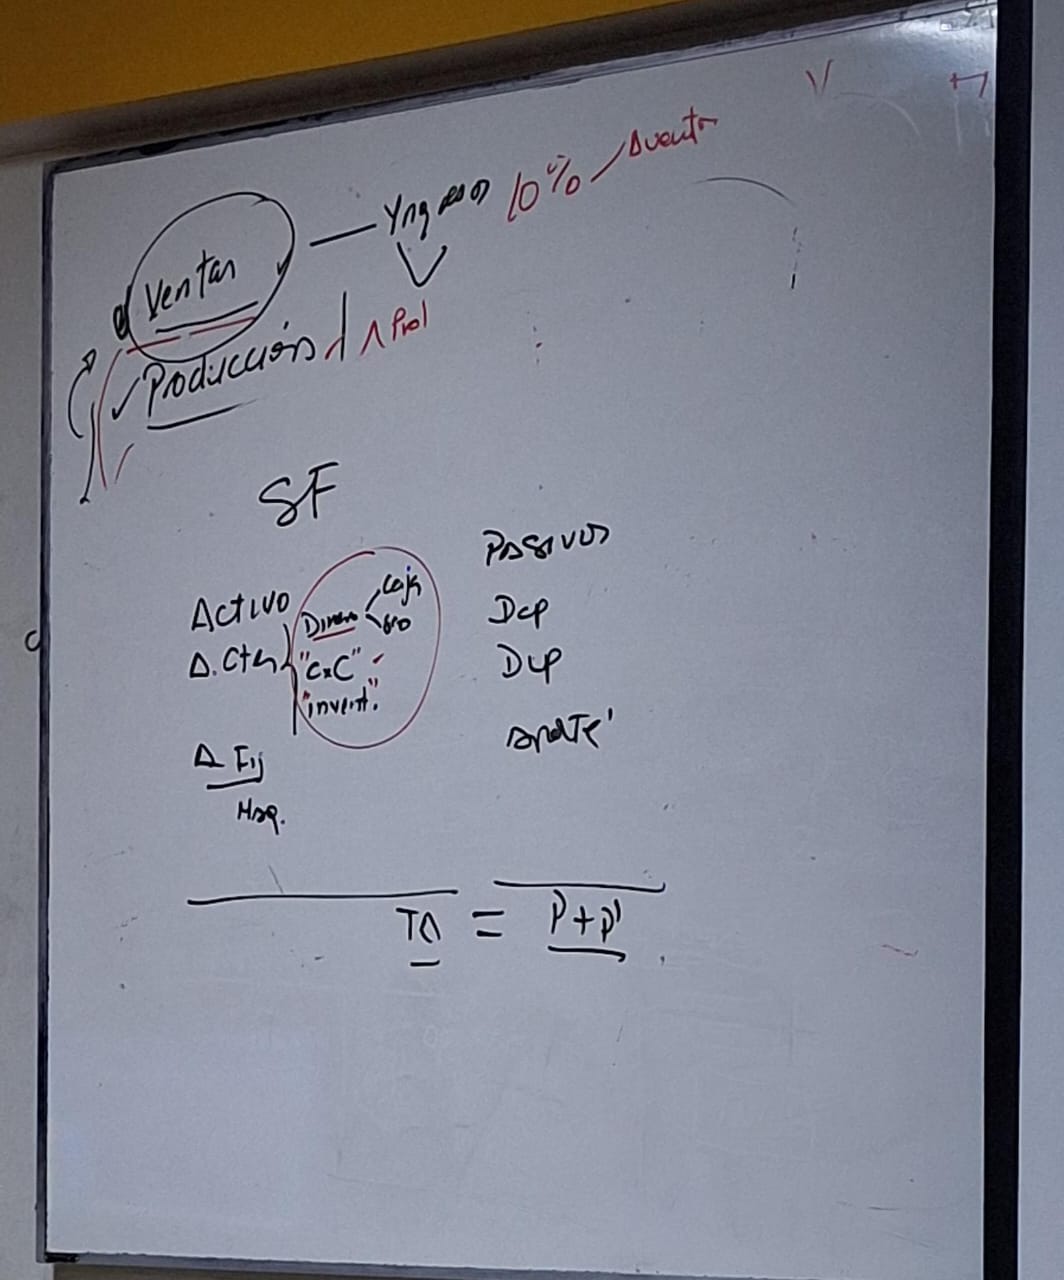 Ventas — Yngresos 10% / Aventa
✓ Producción / ∧ Prod
SF
Activo
Dinero
Caja
Bco
A. Cte
"CxC"
"invent."
A Fij
Maq.
Pasivos
Dcp
DLp
TA = P + P'